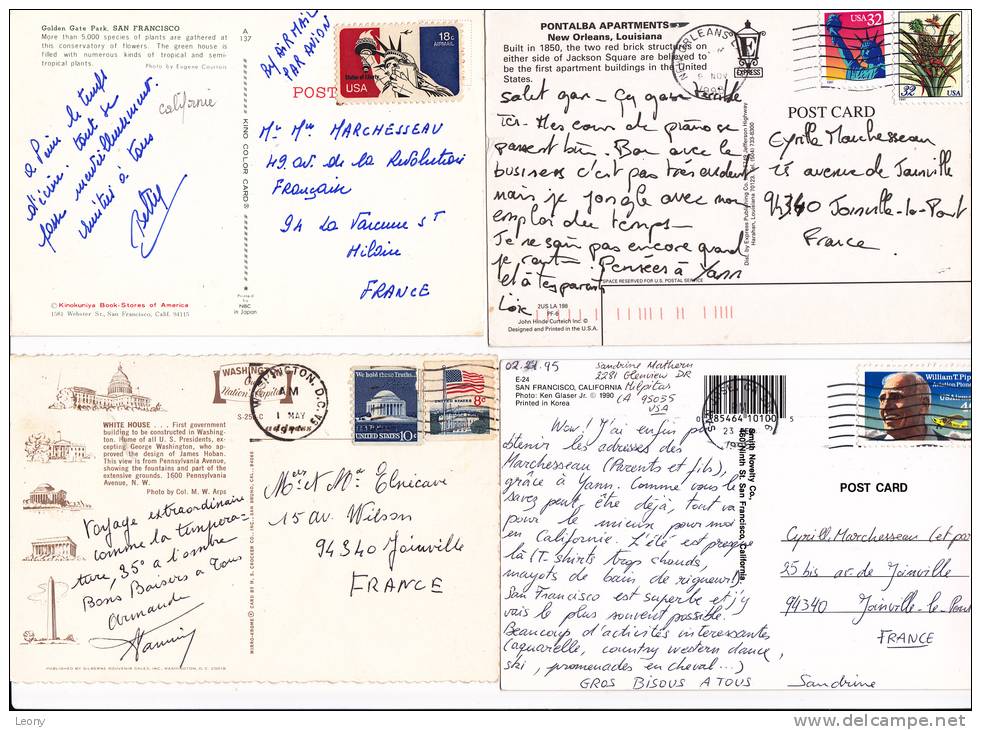 Golden Gate Park, SAN FRANCISCO
More than 5,000 species of plants are gathered at
this conservatory of flowers. The green house is
filled with numerous kinds of tropical and semi-
tropical plants.
Photo by Eugene Courson
A
137
californie
a Peine le temps
d'écrire tout se
passe merveilleusement.
Amitiés à tous
Betty
© Kinokuniya Book-Stores of America
1581 Webster St., San Francisco, Calif. 94115
KING COLOR CARDS
Printed
by
NBC
in Japan
By AIR MAIL
PAR AVION
18c
AIRMAIL
Statue of Liberty
USA
POST
Mr Mme MARCHESSEAU
49 av. de la Revolution
Française
94 La Varenne St
Hilaire
FRANCE
PONTALBA APARTMENTS
New Orleans, Louisiana
Built in 1850, the two red brick structures on
either side of Jackson Square are believed to
be the first apartment buildings in the United
States.
E
EXPRESS
NEW ORLEANS
NOV
USA 32
32 USA
POST CARD
Salut gars - Ça gaze terrible
ici. Mes cours de piano se
passent bien. Bon avec le
business c'est pas très évident
mais je jongle avec mon
emploi du temps.
Je ne sais pas encore quand
je rentre. Pensées à Yann
et à tes parents
Loïc
Dist. by Express Publishing Co.
Jefferson Highway
Harahan, Louisiana 70123. Tel. (504) 733-8300
Cyrille Marchesseau
25 avenue de Joinville
94340 Joinville-le-Pont
France
SPACE RESERVED FOR U.S. POSTAL SERVICE
2US LA 198
PF-6
John Hinde Curteich Inc. ©
Designed and Printed in the U.S.A.
WASHINGTON
Our
Nation's Capitol
S-25-C
WHITE HOUSE . . . First government
building to be constructed in Washing-
ton. Home of all U. S. Presidents, ex-
cepting George Washington, who ap-
proved the design of James Hoban.
This view is from Pennsylvania Avenue,
showing the fountains and part of the
extensive grounds. 1600 Pennsylvania
Avenue, N. W.
Photo by Col. M. W. Arps
WASHINGTON, D.C.
AM
1 MAY
We hold these Truths...
UNITED STATES 10c
8c
UNITED STATES
Voyage extraordinaire
comme la tempera-
ture, 35° a l'ombre
Bons Baisers a Tous
Armande
MIRRO-KROME ® CARD BY H. S. CROCKER CO., INC.
PUBLISHED BY SILBERNE SOUVENIR SALES, INC., WASHINGTON, D.C. 20018
Mer et Me Elnecave
15 av. Wilson
94340 Joinville
FRANCE
E-24
SAN FRANCISCO, CALIFORNIA
Photo: Ken Glaser Jr. © 1990
Printed in Korea
Sandrine Mathern
2281 Glenview DR
Milpitas
CA 95035
USA
0 85464 10100 5
William T. Piper
Aviation Pioneer
USAirmail
Smith Novelty Co.
Ninth St. San Francisco, California
POST CARD
Wow! J'ai enfin pu
obtenir les adresses des
Marchesseau (Parents et fils),
grâce à Yann. Comme vous le
savez peut être déjà, tout va
pour le mieux pour moi
en Californie. L'été est presque
là (T. Shirts trop chauds,
mayots de bain de rigueur!).
San Francisco est superbe et j'y
vais le plus souvent possible.
Beaucoup d'activités interessantes
(aquarelle, country western dance,
ski, promenades en cheval...)
GROS BISOUS A TOUS
Sandrine
Cyrille Marchesseau (et par
25 bis av. de Joinville
94340 Joinville-le-Pont
FRANCE
Leony
www.delcampe.net